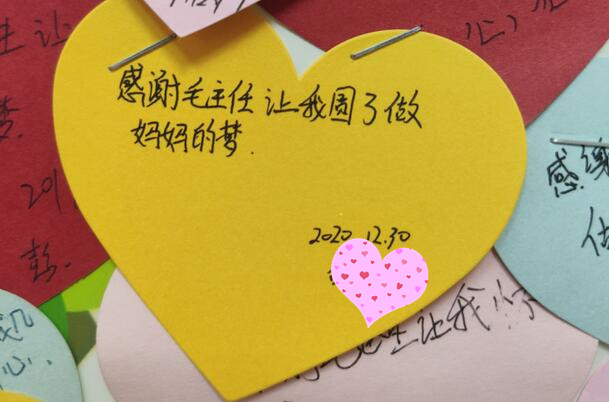 感谢毛主任让我圆了做
妈妈的梦.
2020.12.30
主让
梦.
201
彭.
心
感谢
做
心.
主让我